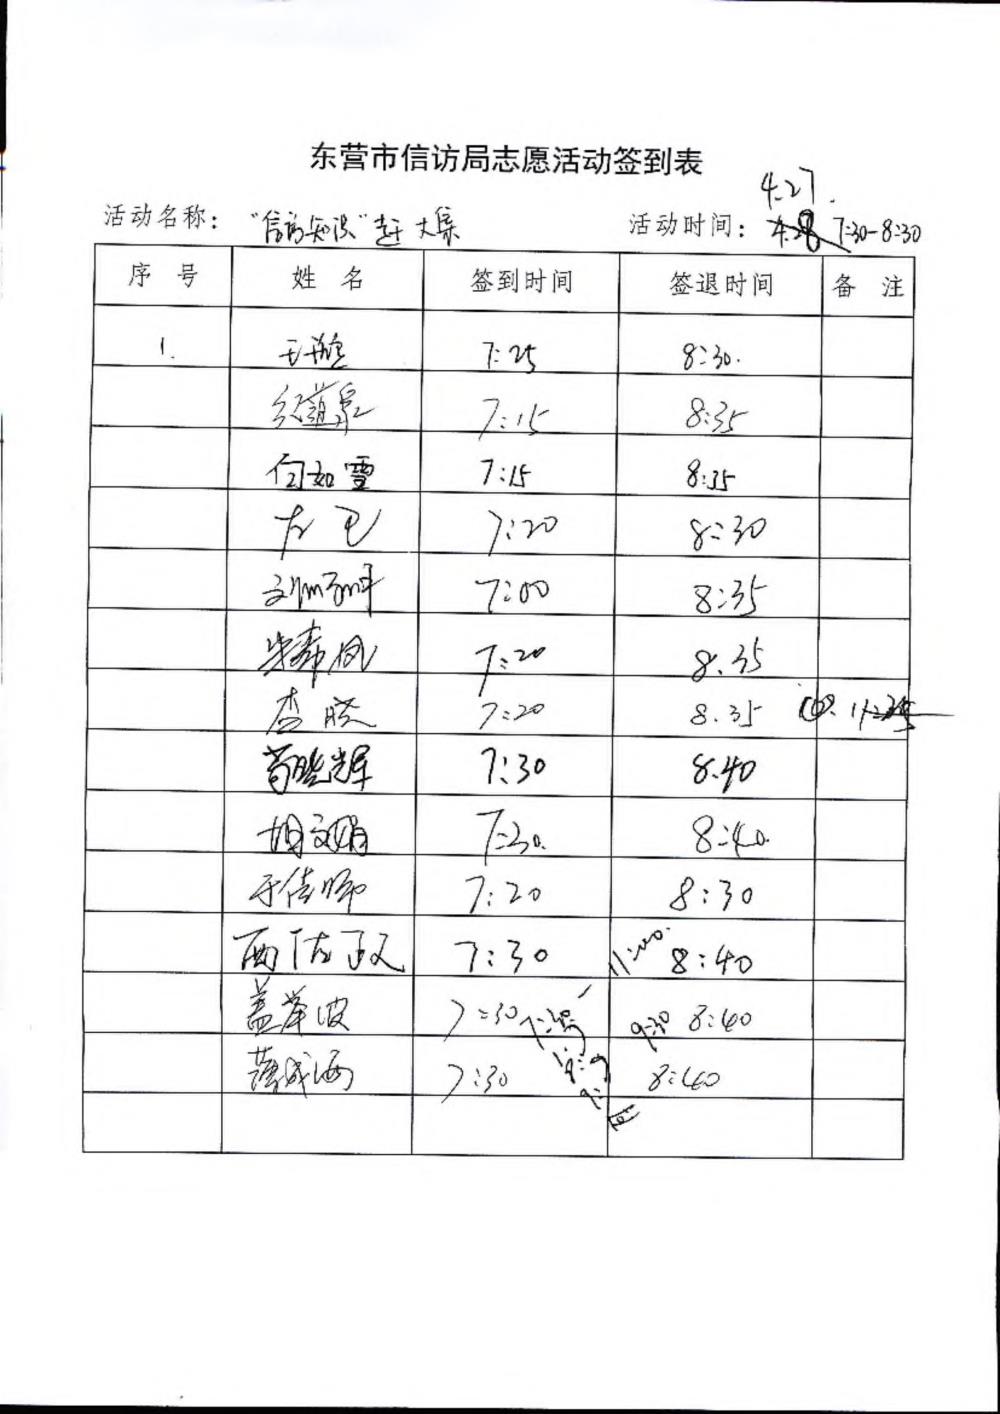 东营市信访局志愿活动签到表
4.27.
活动名称：“信访知识”赶大集 活动时间：4.28 7:30-8:30
序 号 姓 名 签到时间 签退时间 备 注
1. 7:25 8:30.
7:15 8:35
句如雪 7:15 8:35
7:20 8:30
7:00 8:35
朱希凤 7:20 8.35
李 7:20 8.35
苟晓辉 7:30 8.40
胡文娟 7:30. 8:40.
于佳 7:20 8:30
7:30 11:00. 8:40
盖苹波 7:30 9:30 8:40
薄成海 7:30 8:40